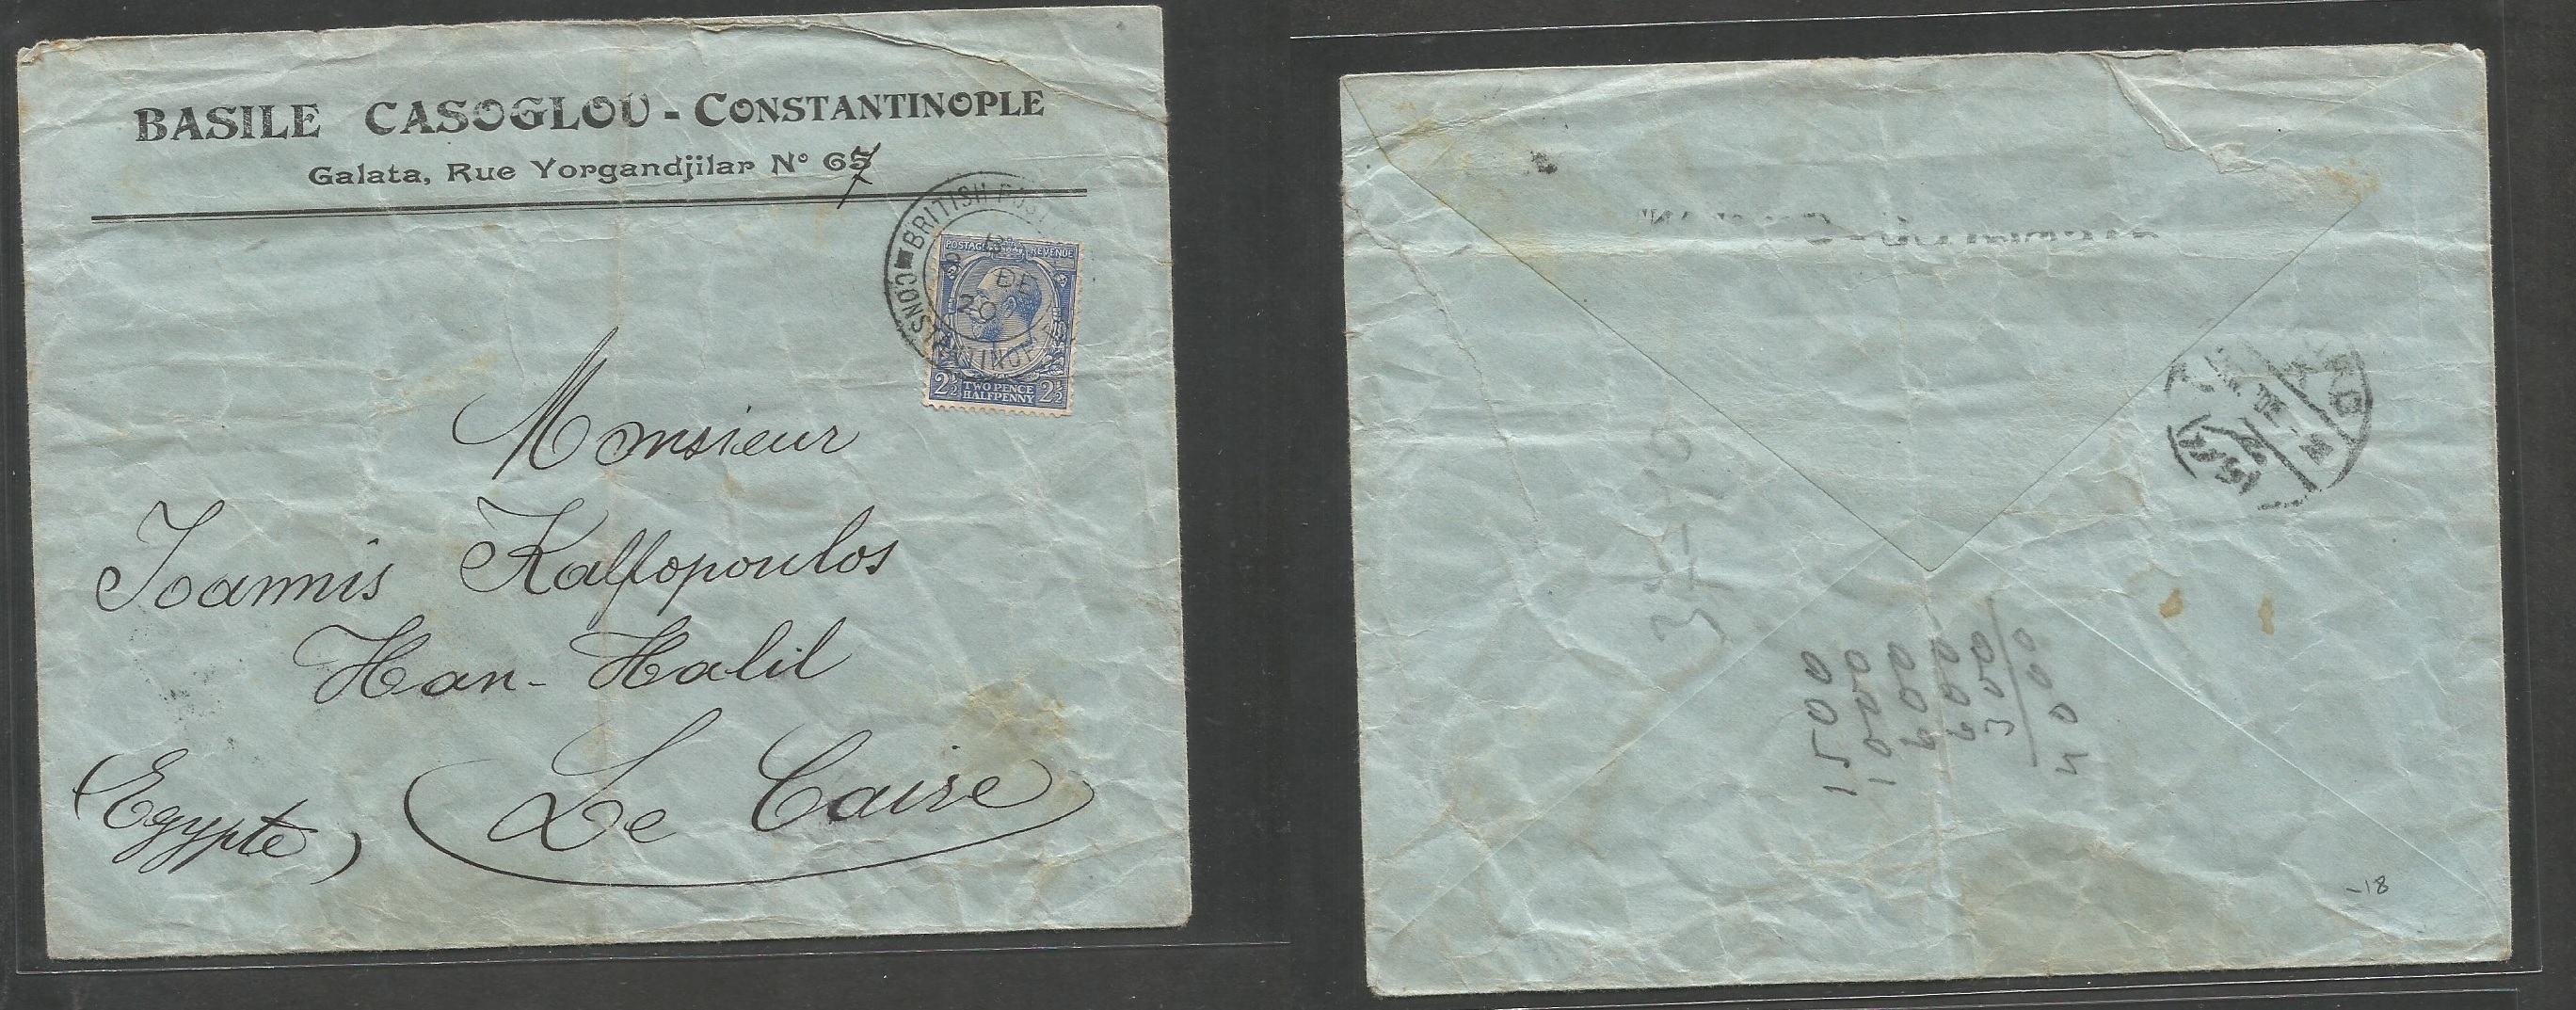 BASILE CASOGLOU - CONSTANTINOPLE
Galata, Rue Yorgandjilar N° 67
BRITISH POST
CONSTANTINOPLE
DE
20
POSTAGE REVENUE
2½ TWO PENCE HALFPENNY 2½
Monsieur
Ioannis Kalfopoulos
Han-Halil
(Egypte) (Le Caire)
1500
1000
600
600
300
4000
-18